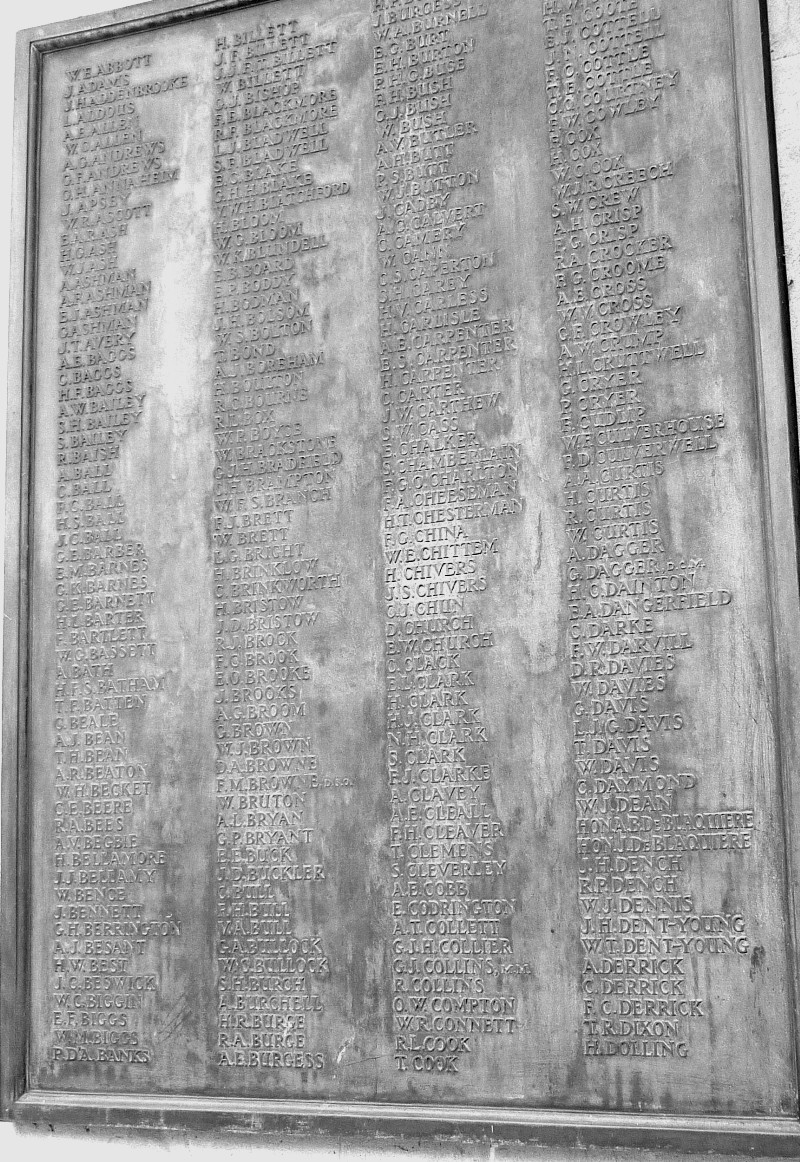 W.E.ABBOTT
J.ADAMS
J.HADDENBROOKE
L.ALDOUS
A.E.ALLEN
W.G.ALLEN
A.G.ANDREWS
G.F.ANDREWS
G.H.ANNAHEIM
J.APSEY
W.R.ASCOTT
E.A.RASH
H.G.ASH
W.J.ASH
A.ASHMAN
A.F.ASHMAN
E.J.ASHMAN
G.ASHMAN
J.T.AVERY
A.E.BAGGS
C.BAGGS
H.F.BAGGS
A.W.BAILEY
S.H.BAILEY
S.BAILEY
R.BAISH
A.BALL
C.BALL
F.C.BALL
H.S.BALL
J.C.BALL
G.E.BARBER
E.M.BARNES
G.K.BARNES
G.E.BARNETT
H.Z.BARTER
F.BARTLETT
W.G.BASSETT
A.BATH
H.F.S.BATHAM
T.F.BATTEN
G.BEALE
A.J.BEAN
T.H.BEAN
A.R.BEATON
W.H.BECKET
C.F.BEERE
R.A.BEES
A.V.BEGBIE
H.BELLAMORE
J.J.BELLAMY
W.BENCE
J.BENNETT
G.H.BERRINGTON
A.J.BESANT
H.W.BEST
J.C.BESWICK
W.C.BIGGIN
E.F.BIGGS
W.M.BIGGS
P.D'A.BANKS
H.BILLETT
J.F.BILLETT
J.J.F.T.BILLETT
W.BILLETT
G.J.BISHOP
F.E.BLACKMORE
R.F.BLACKMORE
L.J.BLADWELL
S.F.BLADWELL
E.E.BLAKE
G.H.H.BLAKE
V.W.H.BLATCHFORD
H.BLOOM
W.G.BLOOM
W.K.BLUNDELL
E.B.BOARD
E.P.BODDY
H.BODMAN
J.H.BOLSOM
W.S.BOLTON
T.BOND
A.J.BOREHAM
H.BOULTON
R.C.BOURNS
R.H.BOX
W.P.BOYCE
W.BRACKSTONE
G.J.H.BRADFIELD
C.H.BRAMPTON
W.F.S.BRANCH
F.J.BRETT
W.BRETT
L.G.BRIGHT
H.BRINKLOW
C.BRINKWORTH
H.BRISTOW
J.D.BRISTOW
R.J.BROOK
F.C.BROOK
E.O.BROOKE
J.BROOKS
A.G.BROOM
G.BROWN
W.J.BROWN
D.A.BROWNE
F.M.BROWNE, D.S.O.
W.BRUTON
A.L.BRYAN
G.P.BRYANT
E.E.BUCK
J.D.BUCKLER
C.BULL
F.H.BULL
V.A.BULL
G.A.BULLOCK
W.G.BULLOCK
S.H.BURCH
A.BURCHELL
H.R.BURGE
R.A.BURGE
A.E.BURGESS
J.BURGESS
W.A.BURNELL
E.G.BURT
E.H.BURTON
P.H.C.BUSE
F.H.BUSH
C.J.BUSH
W.BUSH
A.V.BUTLER
A.H.BUTT
P.S.BUTT
W.J.BUTTON
J.CADBY
A.C.CALVERT
C.CAMERY
W.CANN
C.S.CAPERTON
S.H.CAREY
H.V.CARLESS
H.CARLISLE
A.E.CARPENTER
E.S.CARPENTER
H.CARPENTER
C.CARTER
J.W.CARTHEW
S.W.CASS
B.CHALKER
S.CHAMBERLAIN
F.G.O'CHARLTON
F.A.CHEESEMAN
H.T.CHESTERMAN
F.G.CHINA
W.E.CHITTEM
H.CHIVERS
J.S.CHIVERS
C.J.CHUN
D.CHURCH
E.W.CHURCH
C.SLACK
E.J.CLARK
H.CLARK
H.J.CLARK
N.H.CLARK
S.CLARK
F.J.CLARKE
A.CLAVEY
A.E.CLEALL
F.H.CLEAVER
T.CLEMENS
S.CLEVERLEY
A.E.COBB
E.CODRINGTON
A.T.COLLETT
G.J.H.COLLIER
G.J.COLLINS, M.M.
R.COLLINS
O.W.COMPTON
W.R.CONNETT
R.L.COOK
T.COOK
T.E.COOTE
E.J.COTTELL
J.N.COTTELL
F.C.COTTLE
T.E.COTTLE
O.C.COURTNEY
F.W.COWLEY
F.COX
H.COX
W.C.COX
W.J.R.CREECH
S.W.CREW
A.H.CRISP
F.G.CRISP
R.A.CROCKER
F.G.CROOME
A.E.CROSS
W.V.CROSS
G.E.CROWLEY
A.W.CRUMP
H.L.CRUTTWELL
G.CRYER
P.CRYER
F.CUDLIP
W.F.CULVERHOUSE
F.D.CULVERWELL
A.A.CURTIS
H.CURTIS
R.CURTIS
W.CURTIS
A.DAGGER
G.DAGGER, D.C.M.
H.C.DAINTON
E.A.DANGERFIELD
C.DARKE
F.W.DARVILL
D.R.DAVIES
W.DAVIES
G.DAVIS
L.J.G.DAVIS
T.DAVIS
W.DAVIS
C.DAYMOND
W.J.DEAN
HON.A.B.DE BLAQUIERE
HON.J.DE BLAQUIERE
J.H.DENCH
R.P.DENCH
W.J.DENNIS
J.H.DENT-YOUNG
W.T.DENT-YOUNG
A.DERRICK
C.DERRICK
F.C.DERRICK
T.R.DIXON
H.DOLLING